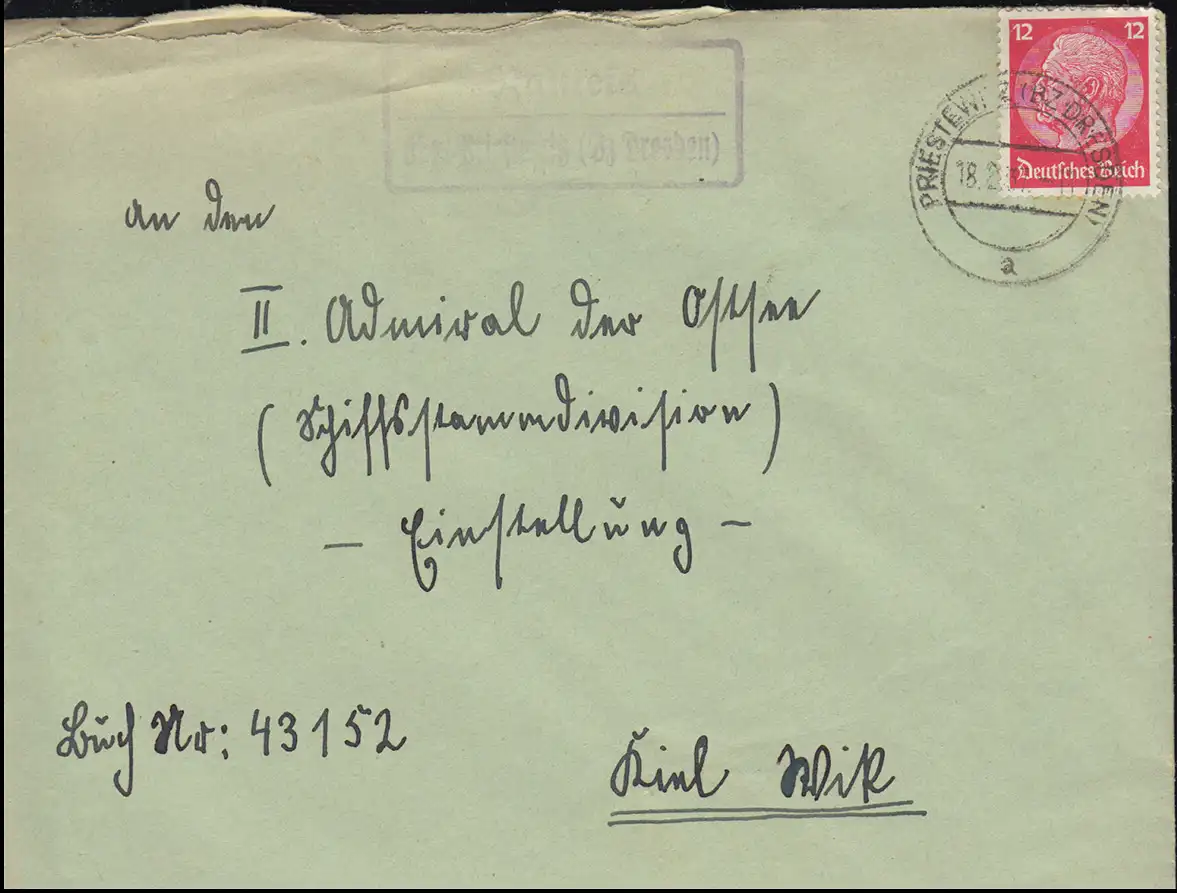 12 12
Deutsches Reich
PRIESTEWITZ (BZ DRESDEN)
18. 2.
a
(Bz Dresden)
An den
II. Admiral der Ostsee
(Schiffsstammdivision)
- Einstellung -
Buch Nr: 43152
Kiel Wik